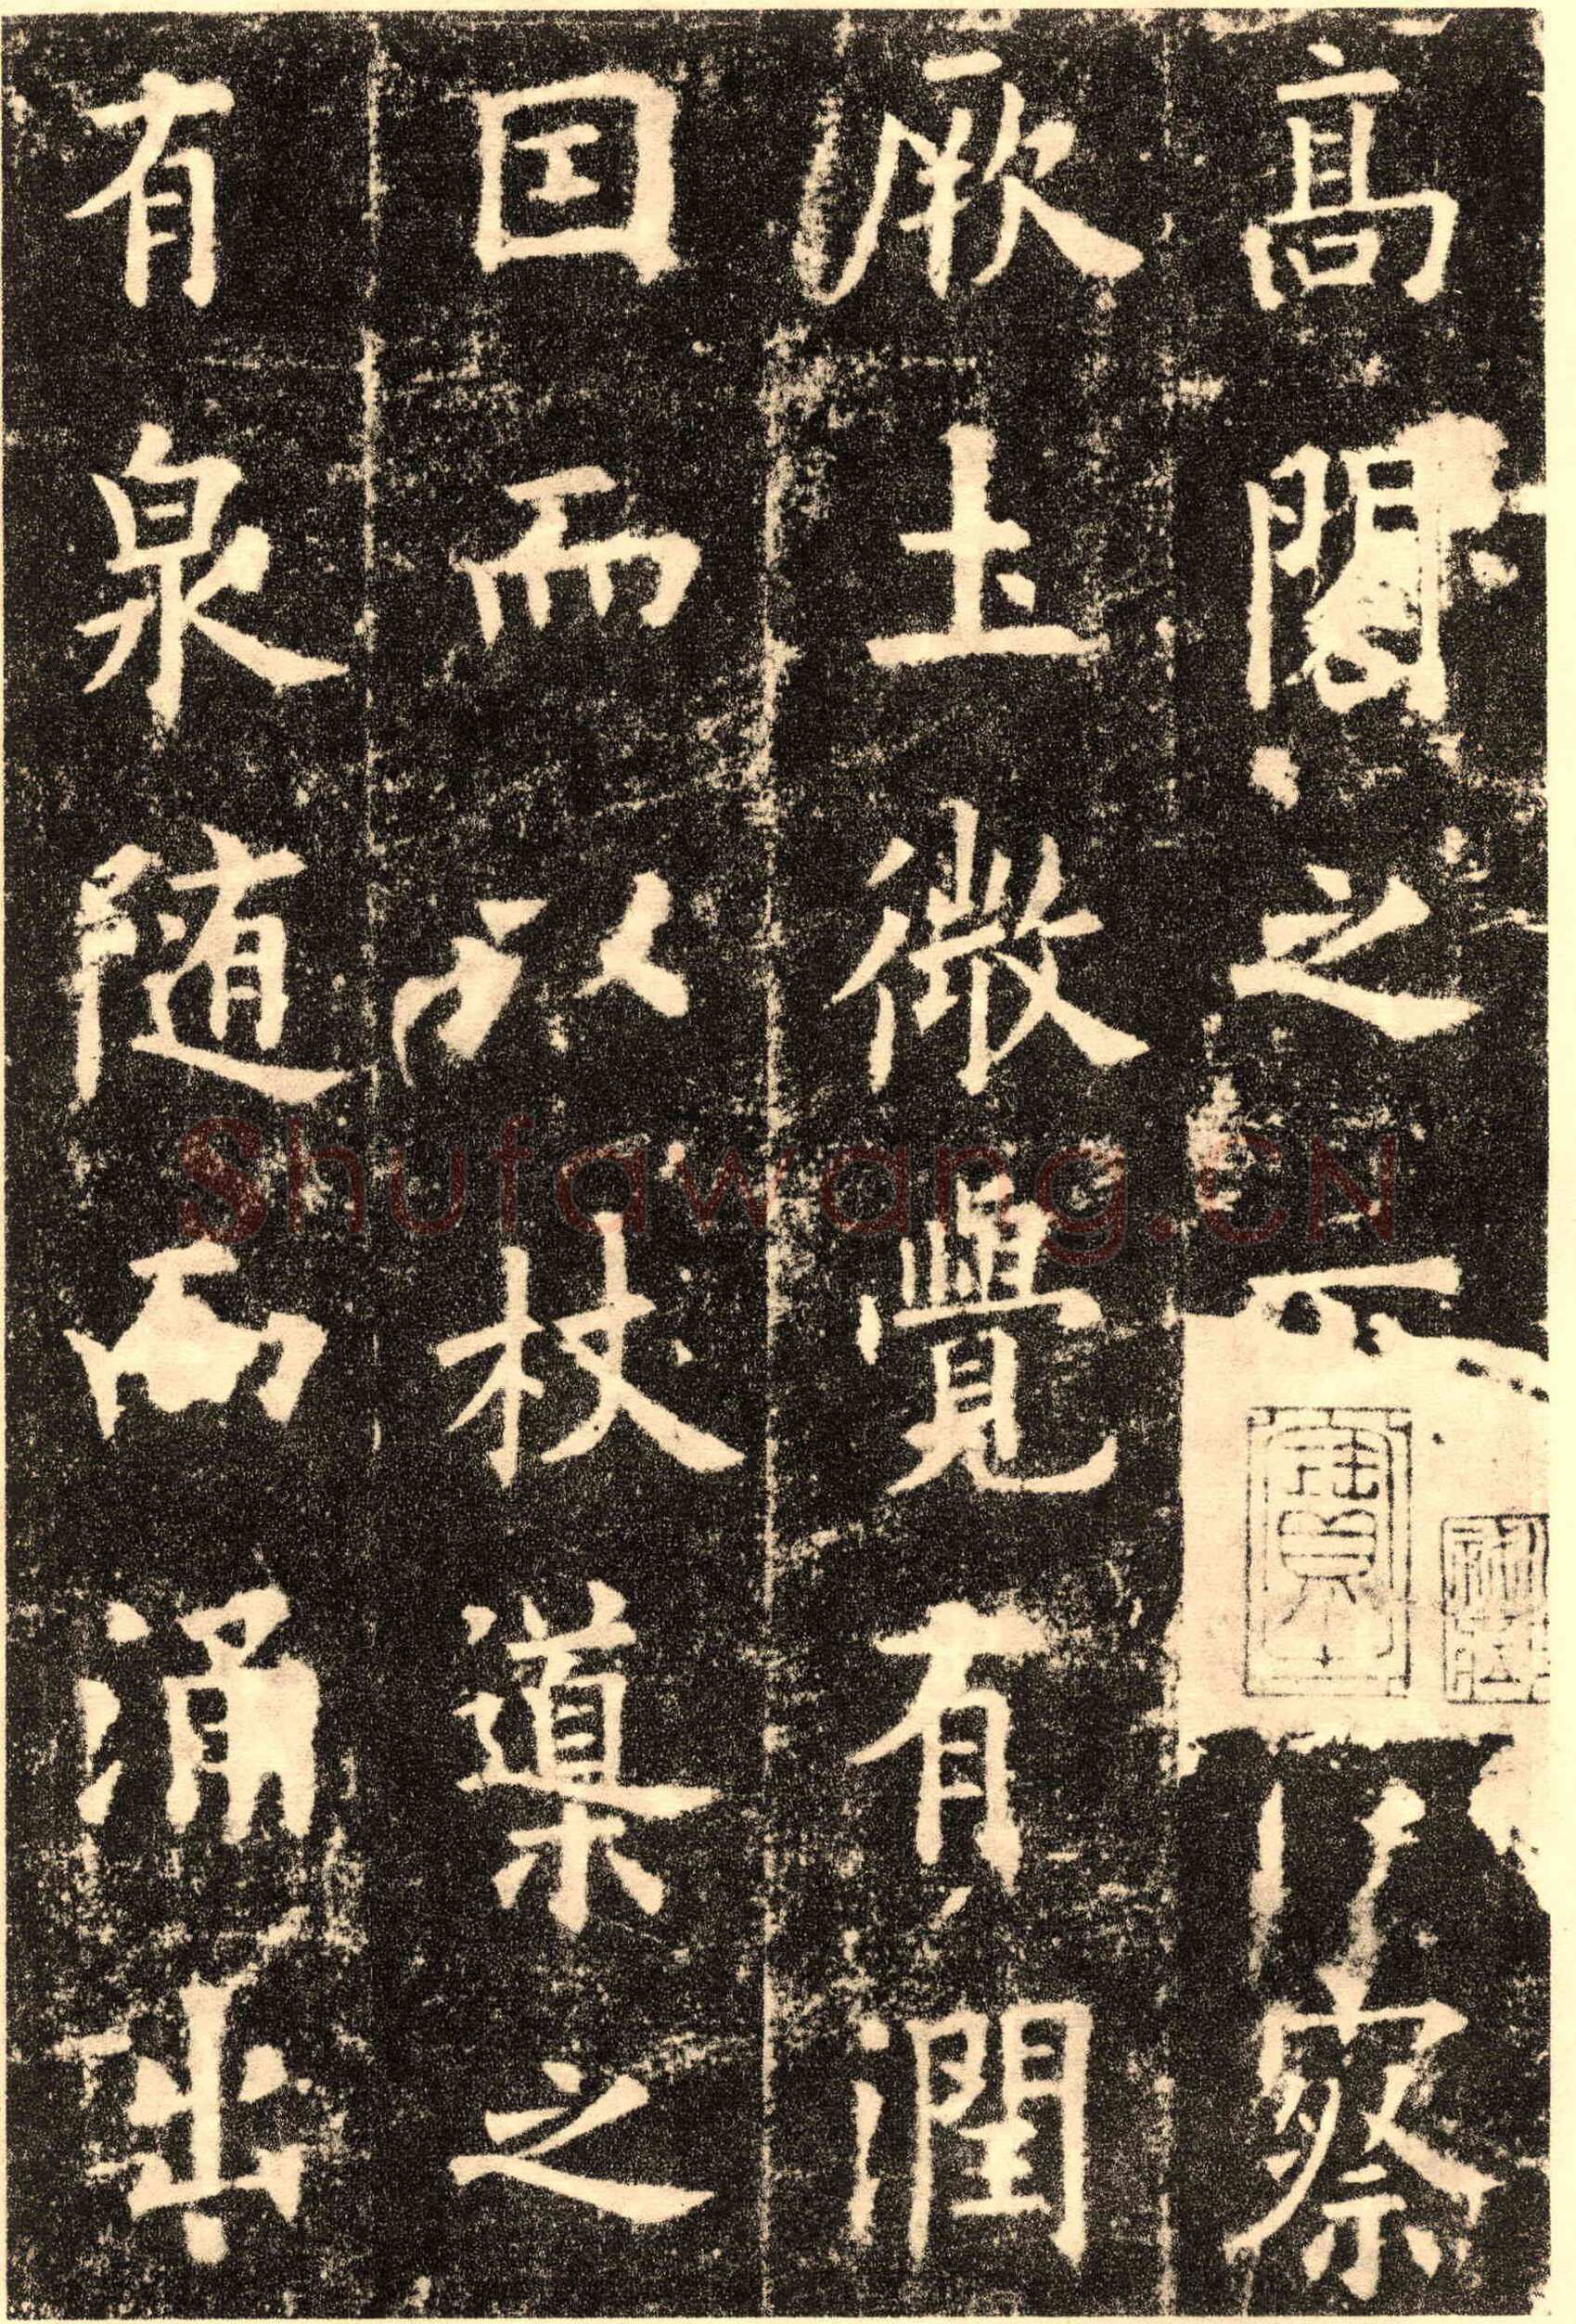 高閣之下察
厥土微覺有潤
囙而以杖導之
有泉随而涌出
Shufawang.CN